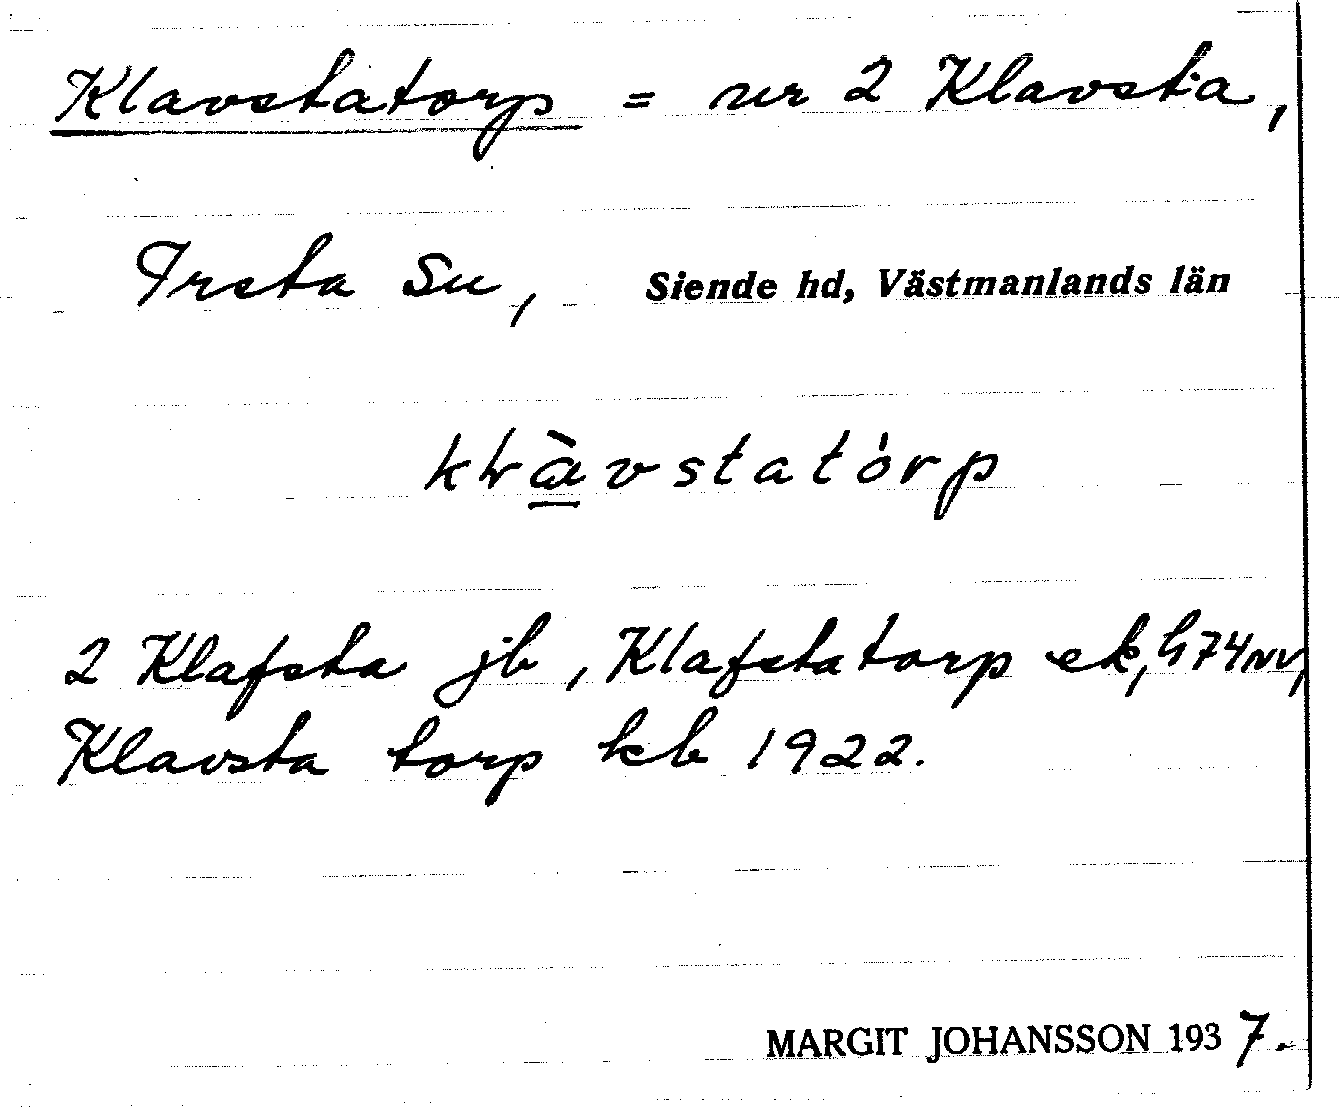 Klavstatorp = nr 2 Klavsta,
Irsta Sn, Siende hd, Västmanlands län
klàvstatórp
2 Klafsta jb, Klafstatorp ek, h74NV,
Klavsta torp kb 1922.
MARGIT JOHANSSON 1937.